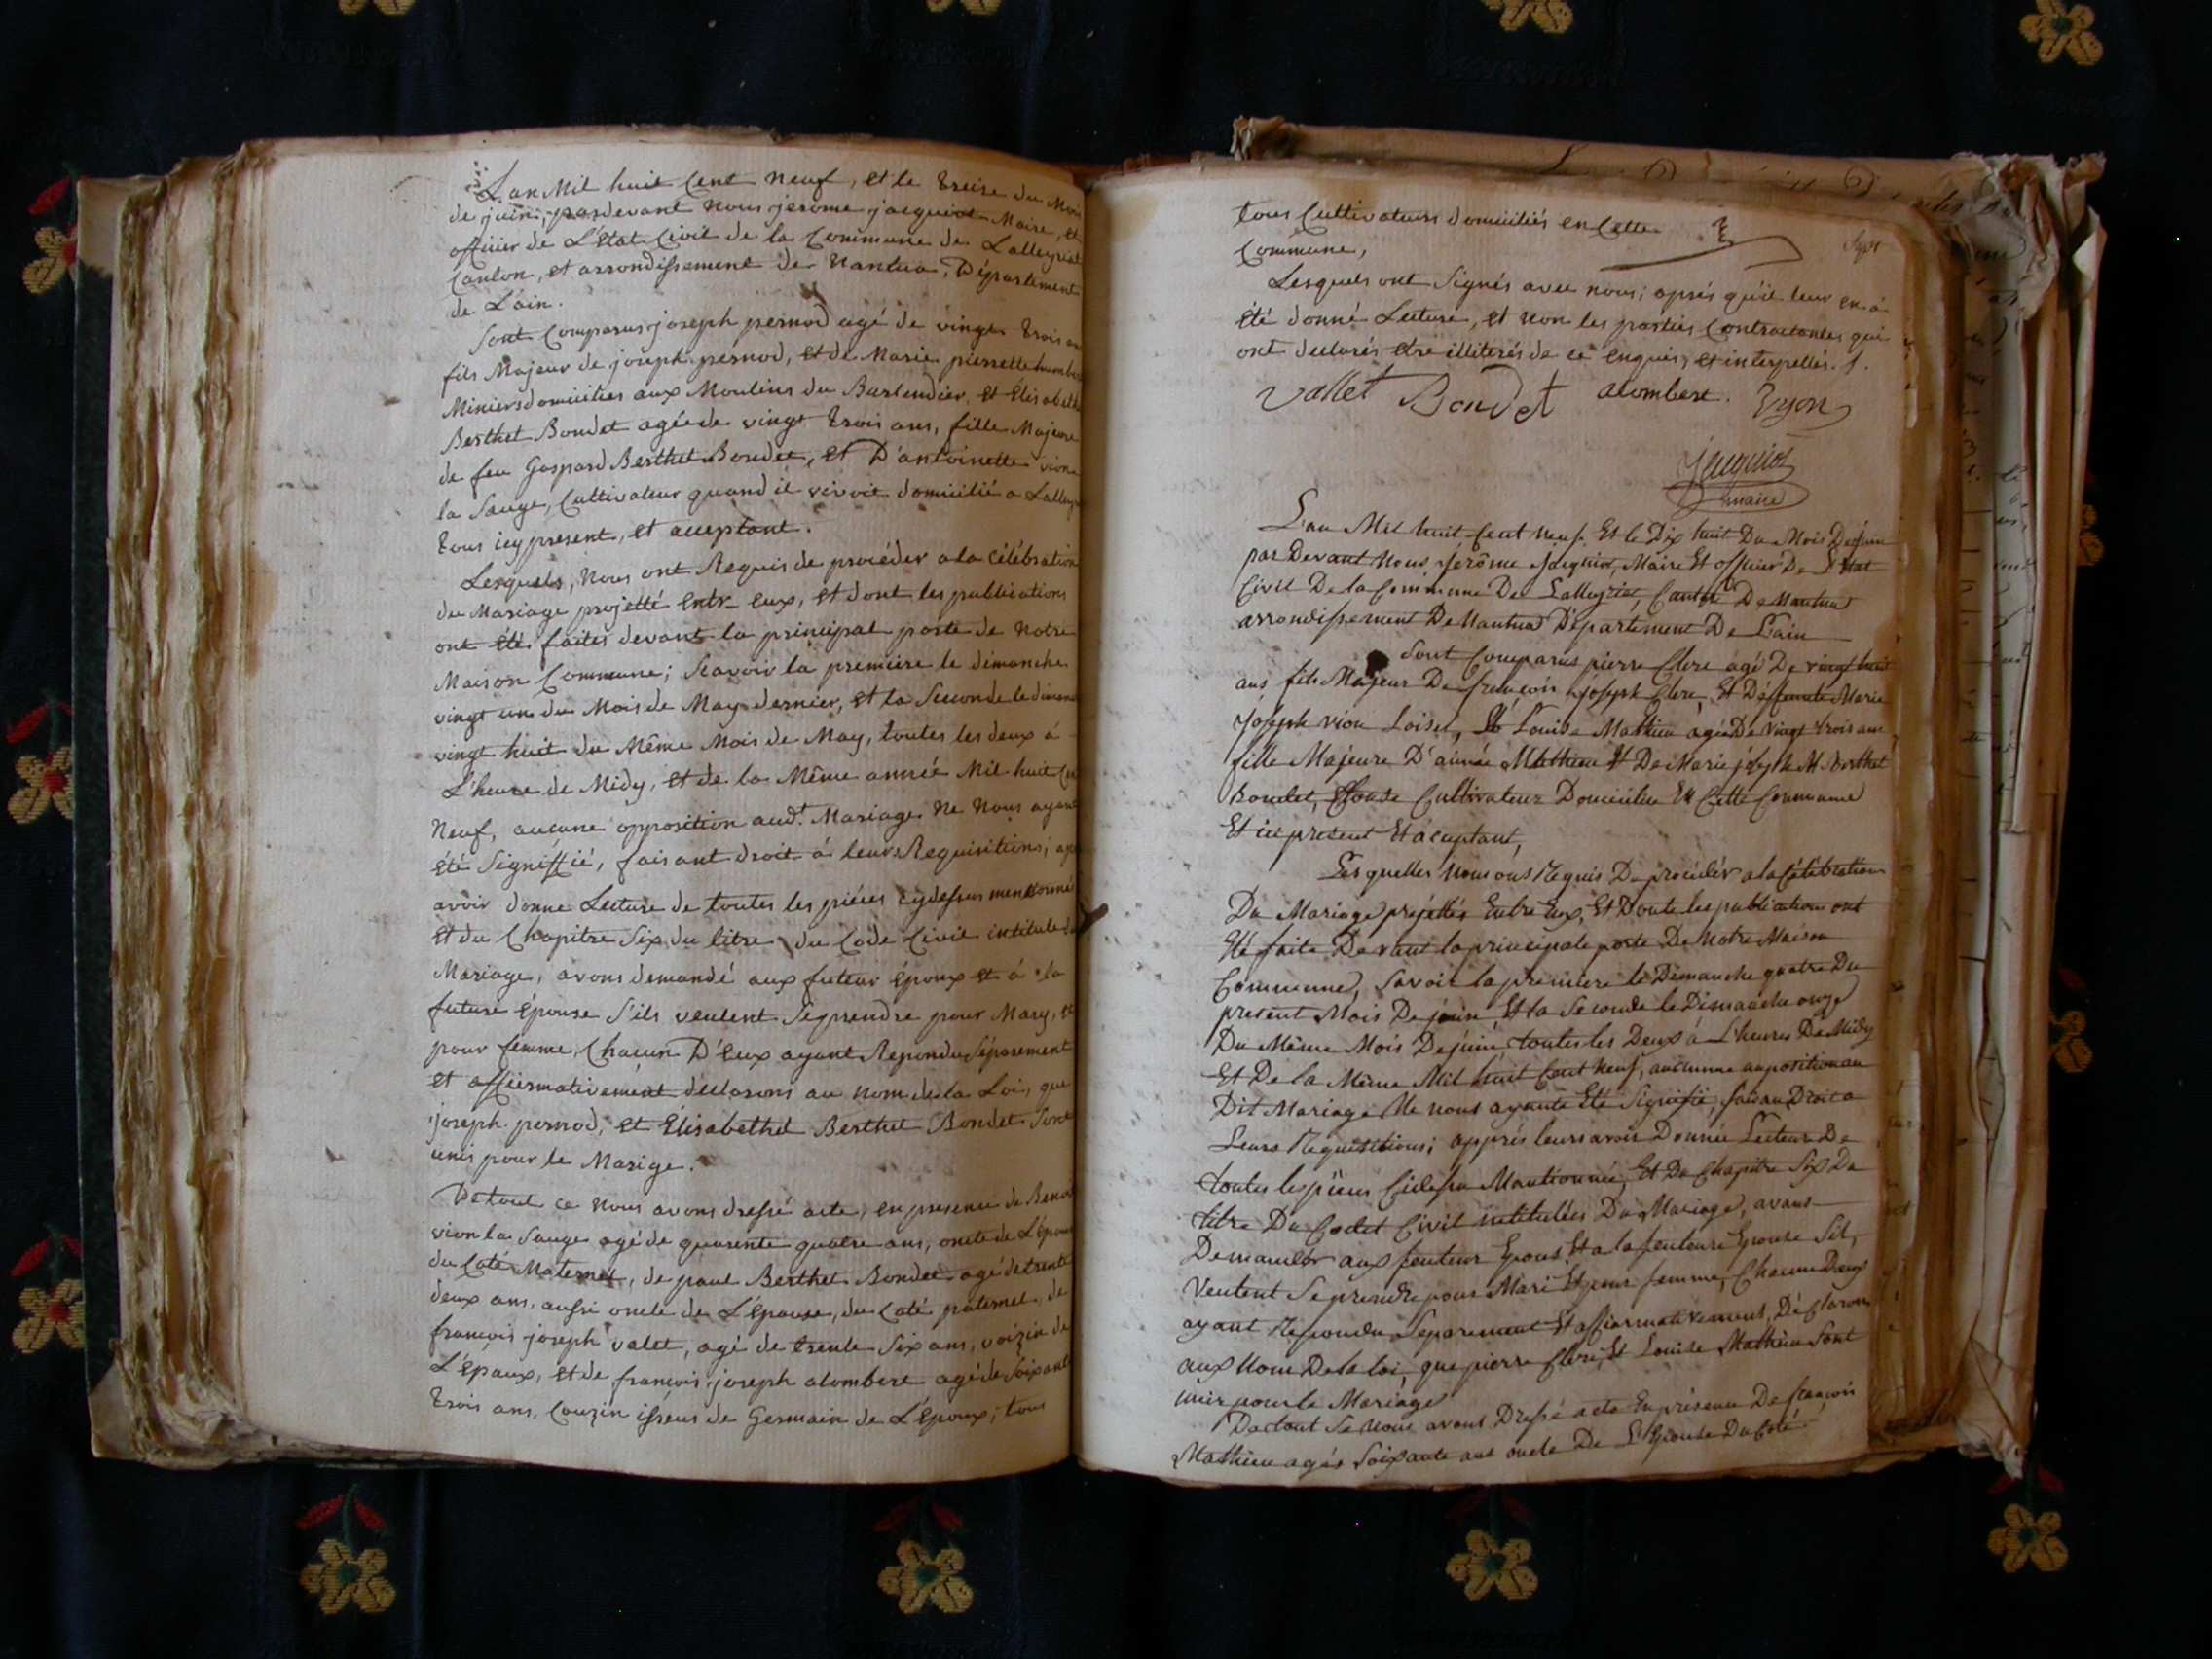 L'an Mil huit Cent neuf, et le treise du Mois
de juin, pardevant nous jerome jacquiot Maire, et
officier de L'état Civil de la Commune de Lalleyriat
Canton, et arrondissement de Nantua, Département
de L'ain.
Sont Comparus joseph pernod agé de vingt trois an
fils Majeur de joseph pernod, et de Marie pierrette humbe
Miniers domiciliés aux Moulins du Burlendier, et Elisabeth
Berthet Bondet agée de vingt trois ans, fille Majeure
de feu Gaspard Berthet Bondet, et D'antoinette vion
la Sauge, Cultivateur quand il vivoit domicilié a Lalley
tous icy present, et acceptant.
Lesquels, nous ont Requis de procéder a la Célébration
du Mariage projetté entr- eux, et dont les publications
ont été faites devant la principal porte de notre
Maison Commune; Scavoir la premiere le dimanche
vingt un du Mois de May dernier, et la Seconde le diman
vingt huit du Même Mois de May, toutes les deux á
L'heure de Midy, et de la Même année Mil huit Ce
Neuf, aucune opposition aud.t Mariage ne Nous ayant
été Signiffié, faisant droit á leurs Requisitions; ap
avoir donne Lecture de toutes les piéces cydessus mentionné
et du Chapitre Six du titre du Code Civil intitulé du
Mariage, avons demandé aux futeur époux et á la
future épouse S'ils veulent Se prendre pour Mary, et
pour femme, Chacun D'Eux ayant Repondu Séparement
et affiermativement declarons au nom de la Loi, que
joseph pernod, et Elisabethet Berthet Bondet Sont
unis pour le Marige.
De tout ce nous avons dressé acte, en presence de Benoi
vion la Sauge agé de quarente quatre ans, oncle de L'épous
du Coté Maternel, de paul Berthet Bondet agé de trente
deux ans, aussi oncle de L'épouse, du Coté paternel, de
françois joseph valet, agé de trente Six ans, voizin de
L'épaux, et de françois joseph alombert agé de Soixant
trois ans, Couzin isseus de Germain de L'époux; tous
tous Cultivateurs domiciliés en Cette
Commune,
Lesquels ont Signés avec nous; aprés qu'il leur en á
été donné Lecture, et non les parties Contractantes qui
ont declarés etre illiterés de ce enquis, et interpellés. /.
Vallet Bondet alombert. Vyon
Jacquiot
maire
L'an Mil huit Cent neuf. Et le Dix huit Du Mois De juin
par Devant Nous Jérôme Jacquiot, Maire Et officier De L'état
Civil De la Commune De Lalleyriat, Canton De Nantua
arrondissement De Nantua Département De L'ain
Sont Comparus pierre Clerc agé De vingt huit
ans fils Majeur De françois joseph Clerc, Et Déffunte Marie
Joseph vion Loisel, Et Louise Mathieu agée De vingt trois ans
fille Majeure D'aimée Mathieu Et De Marie joseph Berthet
Bondet, Cultivateur Domicilié En Cette Commune
Et ici present Et áceptant,
Lesquelles Nous ons Requis De procédér a la Célébration
Du Mariage projettés Entre Eux, Et Donte les publication ont
Eté faite Devant la principale porte De Notre Maison
Commune, Savoir la premiere le Dimanche quatre Du
present Mois De juin Et la Seconde le Dimanche onze
Du Même Mois De juin toutes les Deux á L'heure De Midy
Et De la Même Mil huit Cent neuf, aucunne aupositionau
Dit Mariage Ne nous ayante Eté Signifié, faisan Droit a
Leurs Requisitions; apprés leurs avoir Donnée Lecture De
toutes les piéces Cidessu Mantionnée, Et Du Chapitre Six Du
titre Du Codet Civil intitulées Du Mariage, avons
Demandér aux feuteur Epous Et a la feuteure Epouse Sil,
Veulent Se prendre pour Mari Et pour femme, Chacun Deux
ayant Repondu Séparement Et affiermativement, Déclarons
aux Nom De la loi, que pierre Clerc, Et Louise Mathieu Sont
unis pour le Mariage
De tout Se nous avons Dressé acte En présence De françois
Mathieu agés Soixante ans oncle De L'Epouse Du Coté